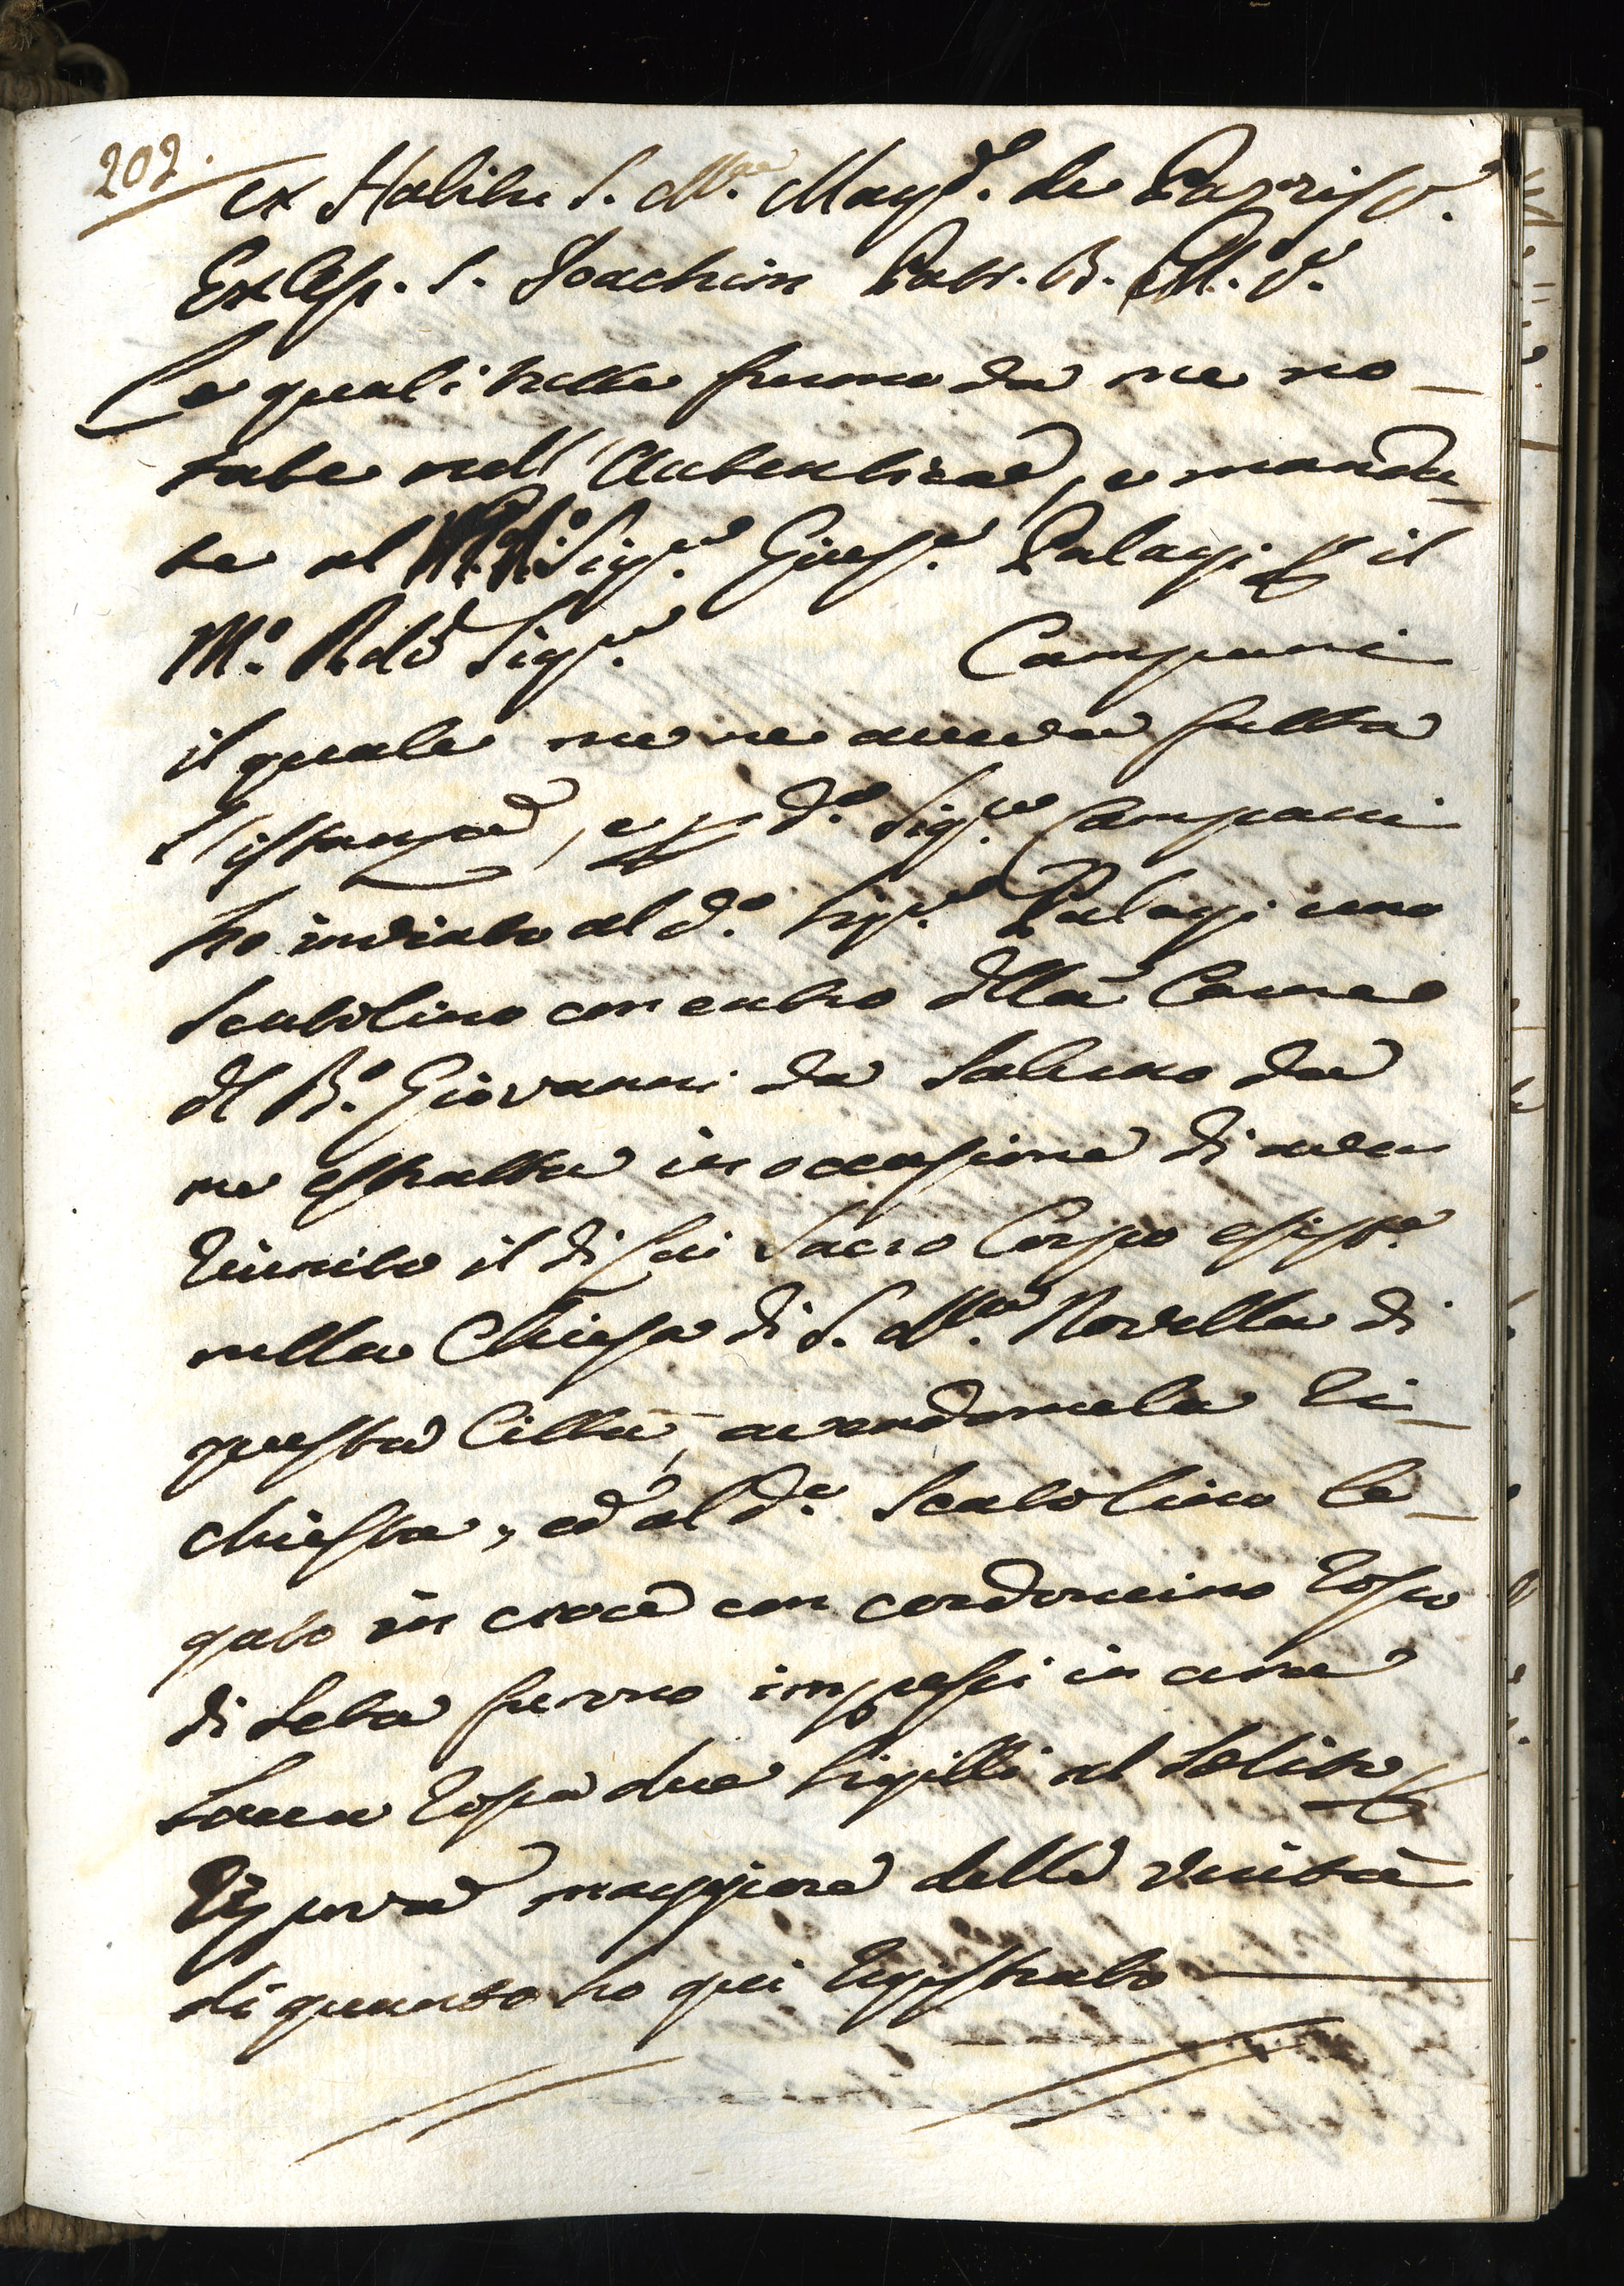 202.
ex Habitu S. M.ae Magd. de Pazzis V.
Ex Osp. S. Joachim Patr. B. M. V.
Le quali tutte furno da me no-
tate nell'Autentica, e manda-
te al Sig.re Gius.e Palagi p il
M.o Rdo Sig.re Campani
il quale me ne aveva fatta
l'istanza, e p d.o Sig.re Campani
ho inviato al d.o Sig.re Palagi uno
Scatolino con entro della Carne
del B.o Giovanni da Salerno da
me estratta in occasione di aver
riunito il di Lui Sacro Corpo esist.e
nella Chiesa di S. M.a Novella di
questa Città, avendomela ri-
chiesta, ed al d.o Scatolino le-
gato in croce con cordoncino rosso
di Seta furno impressi in cera
Lacca rossa due Sigilli al Solito p
riprova maggiore della verità
di quanto ho qui registrato